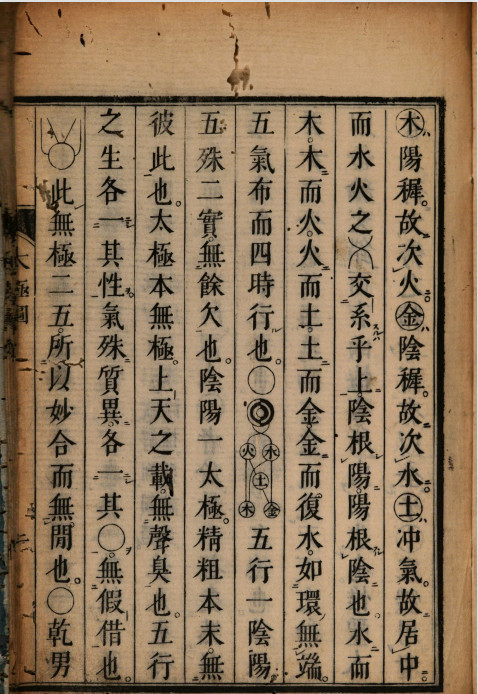 木陽穉。故次火。金陰穉。故次水。土冲氣。故居中。
而水火之交系乎上陰根陽。陽根陰也。水而
木。木而火。火而土。土而金。金而復水。如環無端。
五氣布而四時行也。○◎
火 水
土
木 金
五行一陰陽
五殊二實無餘欠也。陰陽一太極。精粗本末無
彼此也。太極本無極。上天之載。無聲臭也。五行
之生各一其性。氣殊質異。各一其○。無假借也。
○此無極二五。所以妙合而無閒也。○乾男
太極圖